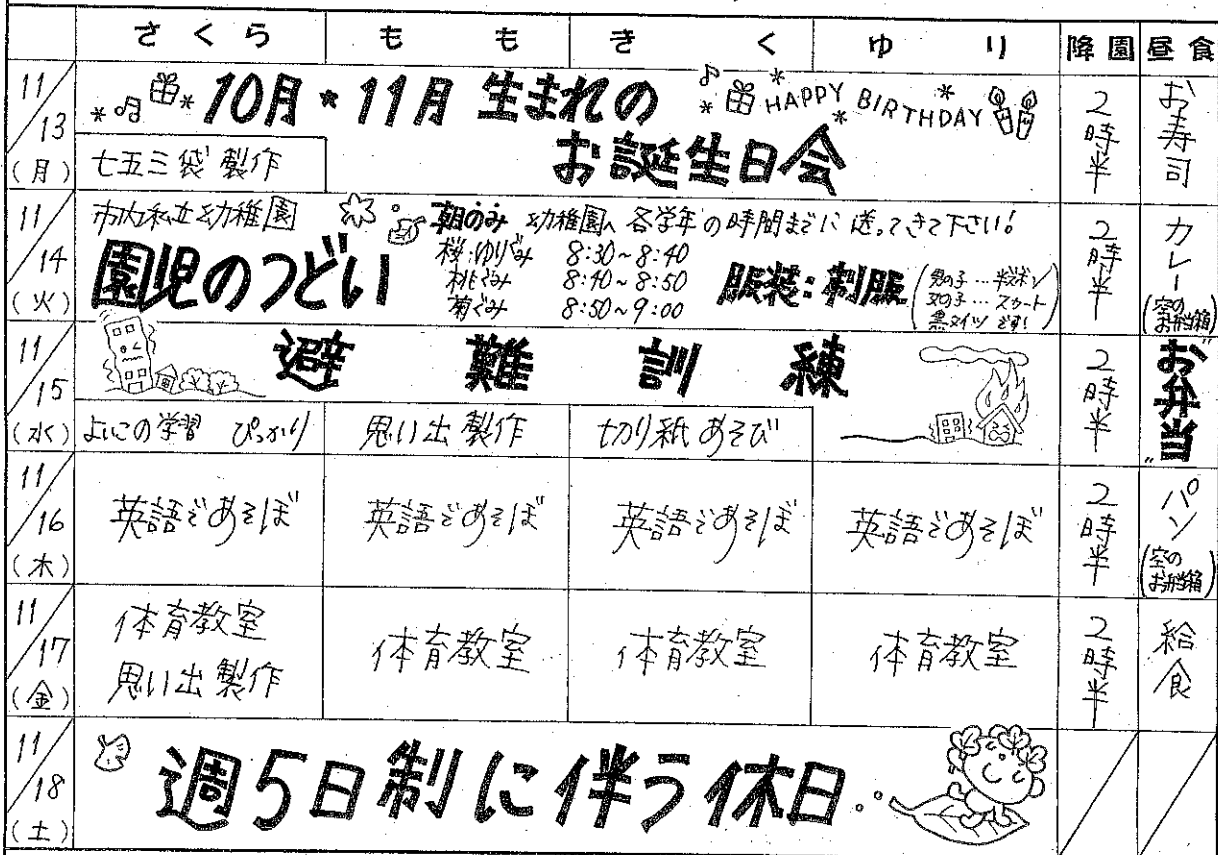 さくら もも きく ゆり 降園 昼食
11/13(月)
10月*11月 生まれの
お誕生日会
HAPPY BIRTHDAY
七五三袋 製作
2時半
お寿司
11/14(火)
市内私立幼稚園
園児のつどい
朝のみ 幼稚園へ 各学年の時間までに送ってきて下さい!
桜・ゆりぐみ 8:30~8:40
桃ぐみ 8:40~8:50
菊ぐみ 8:50~9:00
服装:制服
(男の子…半ズボン
女の子…スカート
黒タイツ です!)
2時半
カレー
(空のお弁当箱)
11/15(水)
避難訓練
よいこの学習 ぴっかり
思い出製作
切り紙あそび
2時半
"お弁当"
11/16(木)
英語であそぼ 英語であそぼ 英語であそぼ 英語であそぼ
2時半
パン
(空のお弁当箱)
11/17(金)
体育教室
思い出製作
体育教室 体育教室 体育教室
2時半
給食
11/18(土)
週5日制に伴う休日